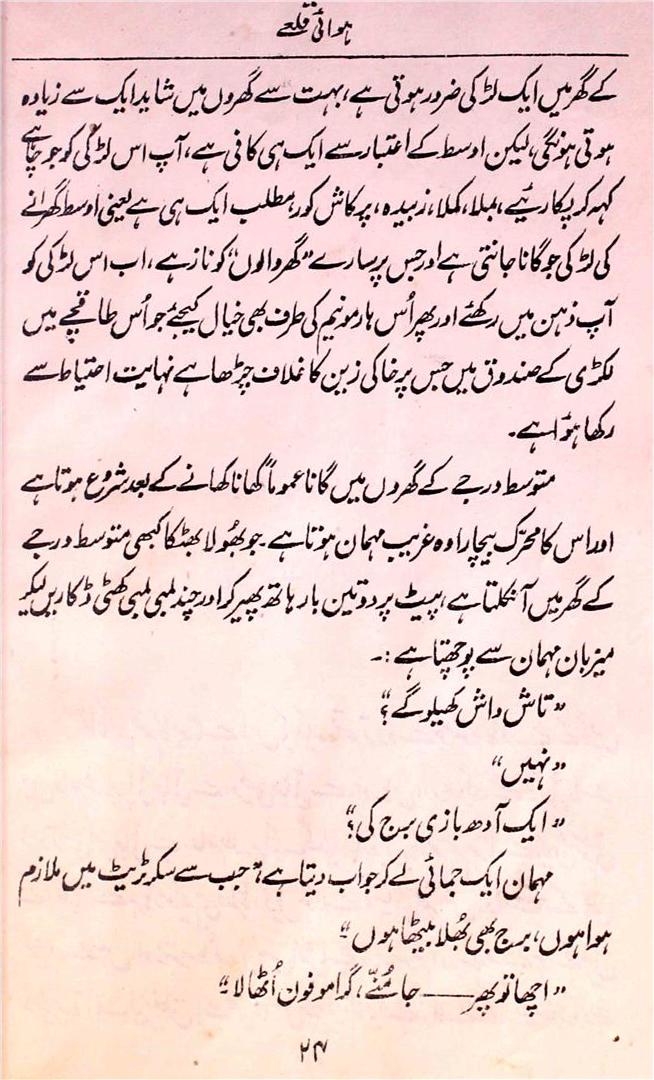 ہوائی قلعے
کے گھر میں ایک لڑکی ضرور ہوتی ہے، بہت سے گھروں میں شاید ایک سے زیادہ
ہوتی ہونگی، لیکن اوسط کے اعتبار سے ایک ہی کافی ہے، آپ اس لڑکی کو جو چاہے
کہہ کر پکاریئے، بملا، کملا، زبیدہ، پرکاش کور، مطلب ایک ہی ہے یعنی اوسط گھرانے
کی لڑکی جو گانا جانتی ہے اور جس پر سارے "گھر والوں" کو ناز ہے، اب اس لڑکی کو
آپ ذہن میں رکھئے اور پھر اُس ہارمونیم کی طرف بھی خیال کیجئے جو اُس طاقچے میں
لکڑی کے صندوق میں جس پر خاکی زین کا غلاف چڑھا ہے نہایت احتیاط سے
رکھا ہؤا ہے۔
متوسط درجے کے گھروں میں گانا عموماً کھانا کھانے کے بعد شروع ہوتا ہے
اور اس کا محرّک بیچارا وہ غریب مہمان ہوتا ہے۔ جو بھُولا بھٹکا کبھی متوسط درجے
کے گھر میں آ نکلتا ہے، پیٹ پر دو تین بار ہاتھ پھیر کر اور چند لمبی لمبی کھٹی ڈکاریں لیکر
میزبان مہمان سے پوچھتا ہے :۔
"تاش واش کھیلو گے؟"
"نہیں"
"ایک آدھ بازی برج کی؟"
مہمان ایک جمائی لے کر جواب دیتا ہے، "جب سے سکرٹریٹ میں ملازم
ہوا ہوں، برج بھی بھُلا بیٹھا ہوں"
"اچھا تو پھر ــــــ جا مُنّے، گراموفون اُٹھا لا۔"
۲۴